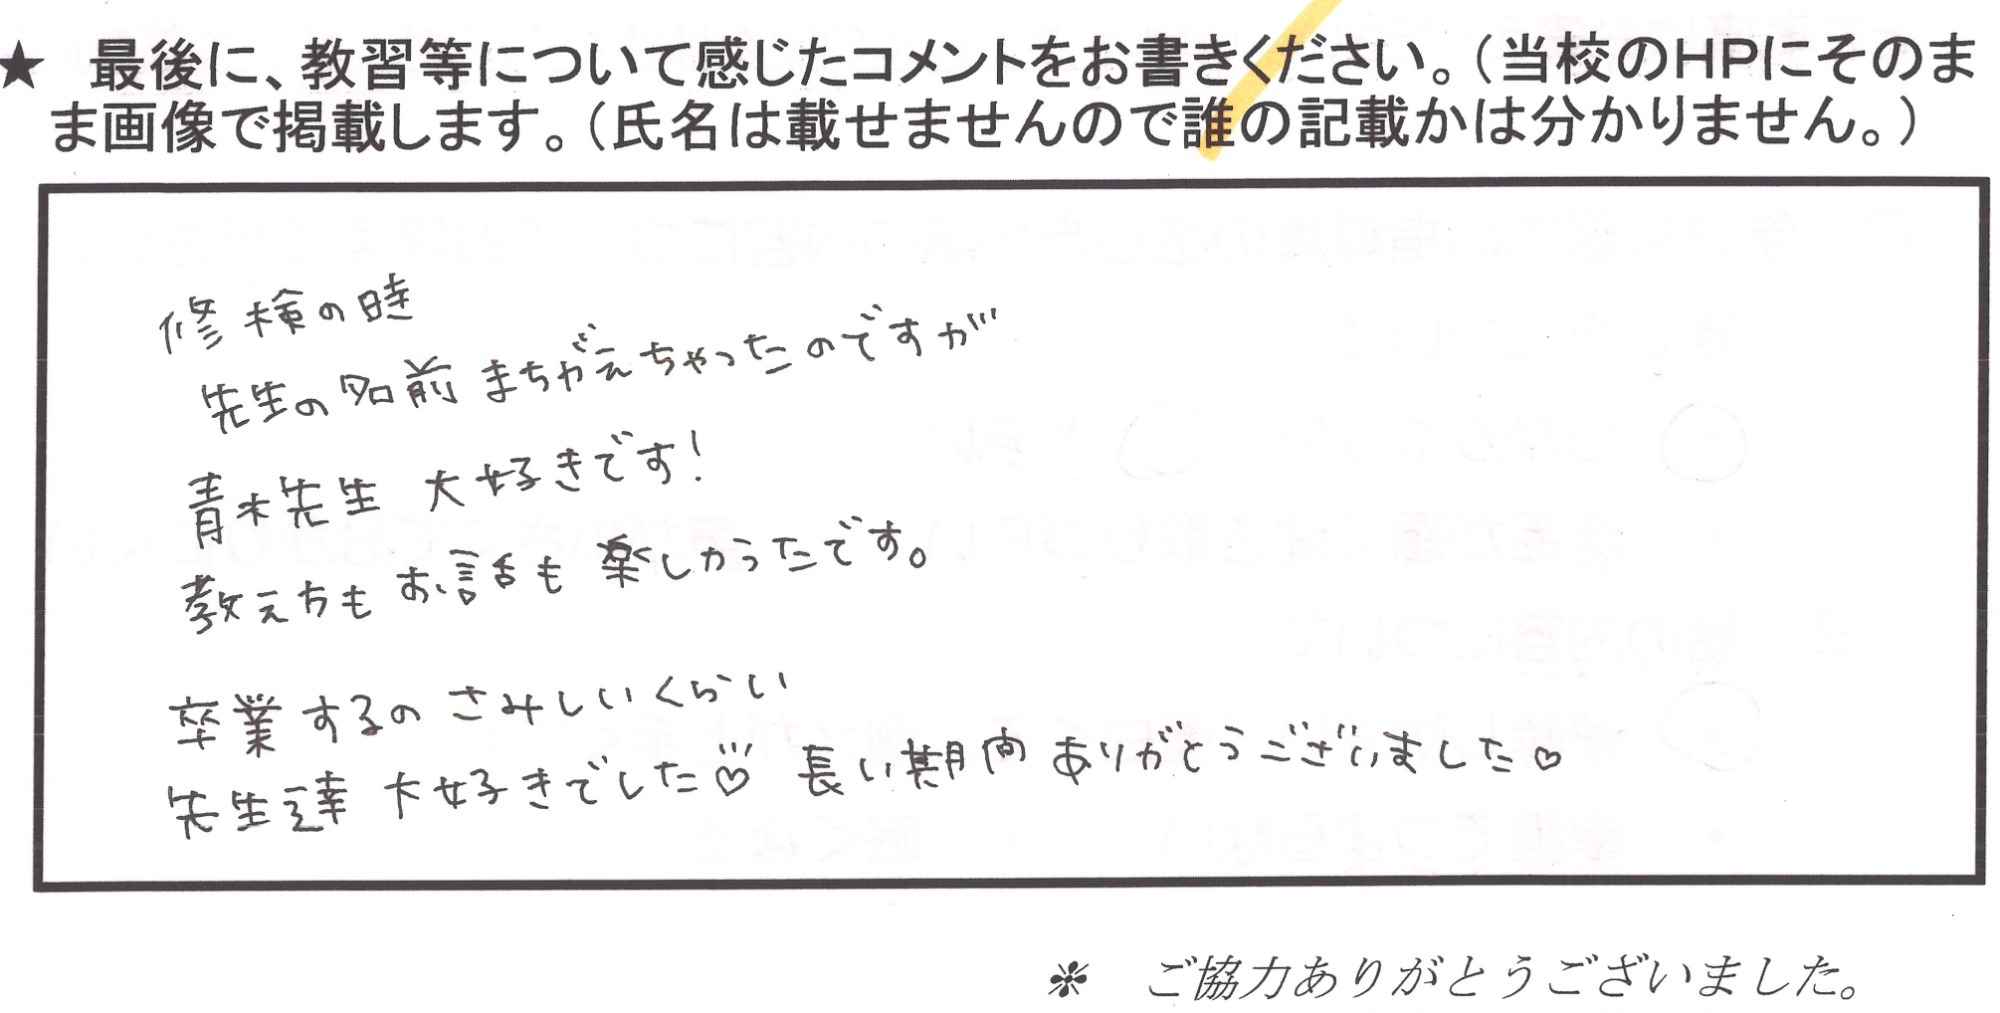 ★ 最後に、教習等について感じたコメントをお書きください。（当校のHPにそのま
ま画像で掲載します。（氏名は載せませんので誰の記載かは分かりません。）
修検の時
先生の名前まちがえちゃったのですが
青木先生 大好きです!
教え方もお話も楽しかったです。
卒業するのさみしいくらい
先生達 大好きでした♡ 長い期間ありがとうございました♡
※ ご協力ありがとうございました。